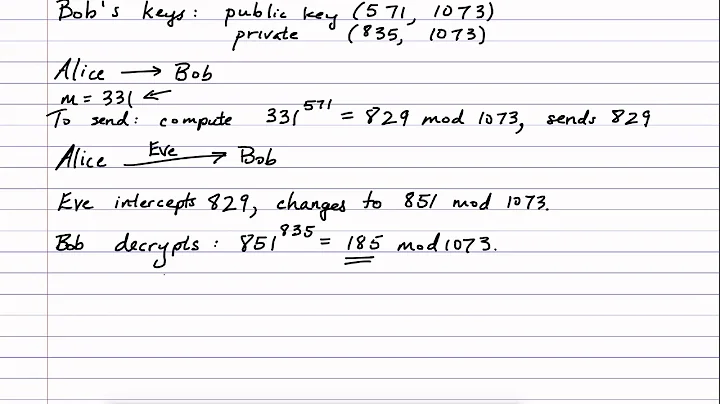 Bob's keys: public key (571, 1073)
private (835, 1073)
Alice → Bob
m = 331 ←
To send: compute 331^571 = 829 mod 1073, sends 829
Alice Eve → Bob
Eve intercepts 829, changes to 851 mod 1073.
Bob decrypts: 851^835 = 185 mod 1073.